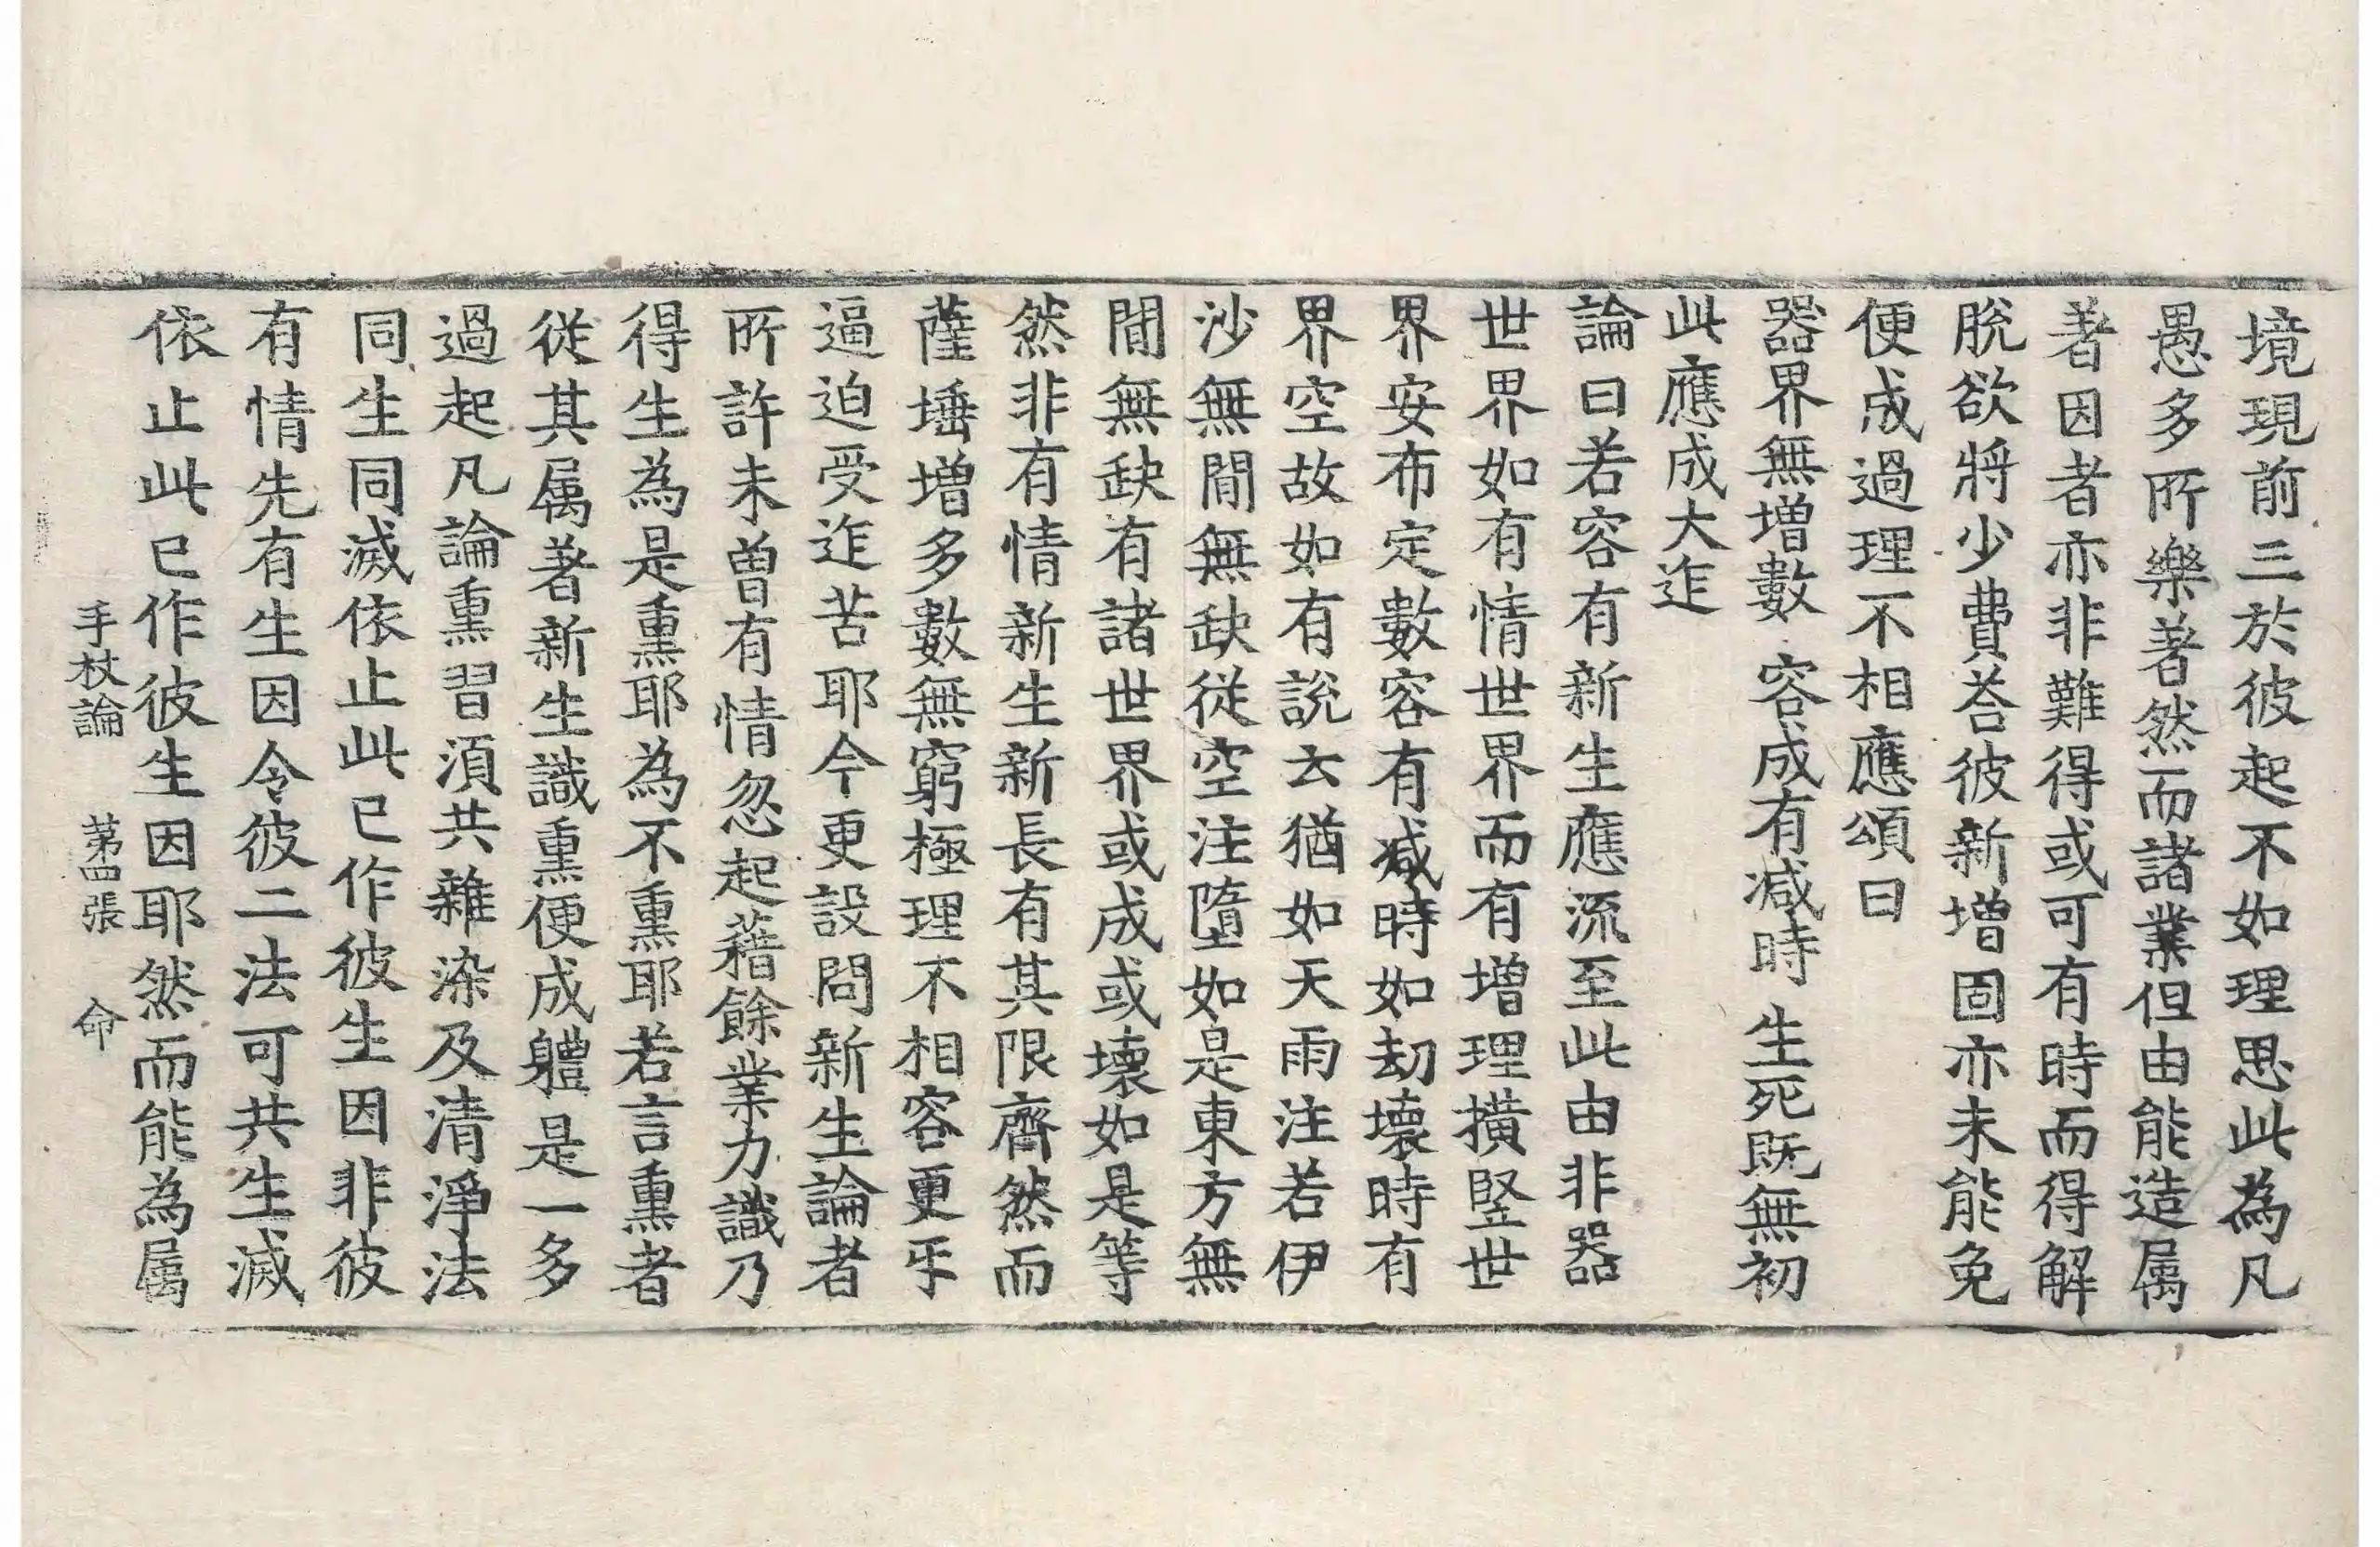 境現前三於彼起不如理思此為凡
愚多所樂著然而諸業但由能造属
著因者亦非難得或可有時而得解
脫欲將少費荅彼新增固亦未能免
便成過理不相應頌曰
器界無增數 容成有减時 生死既無初
此應成大迮
論曰若容有新生應流至此由非器
世界如有情世界而有增理撗竪世
界安布定數容有减時如劫壞時有
界空故如有說云猶如天雨注若伊
沙無間無缺從空注墮如是東方無
間無缺有諸世界或成或壞如是等
然非有情新生新長有其限齊然而
薩埵增多數無窮極理不相容更㸦
逼迫受迮苦耶今更設問新生論者
所許未曾有情忽起藉餘業力識乃
得生為是熏耶為不熏耶若言熏者
從其属著新生識熏便成軆是一多
過起凡論熏習湏共雜染及清淨法
同生同滅依止此已作彼生因非彼
有情先有生因令彼二法可共生滅
依止此已作彼生因耶然而能為属
手杖論 苐四張 命